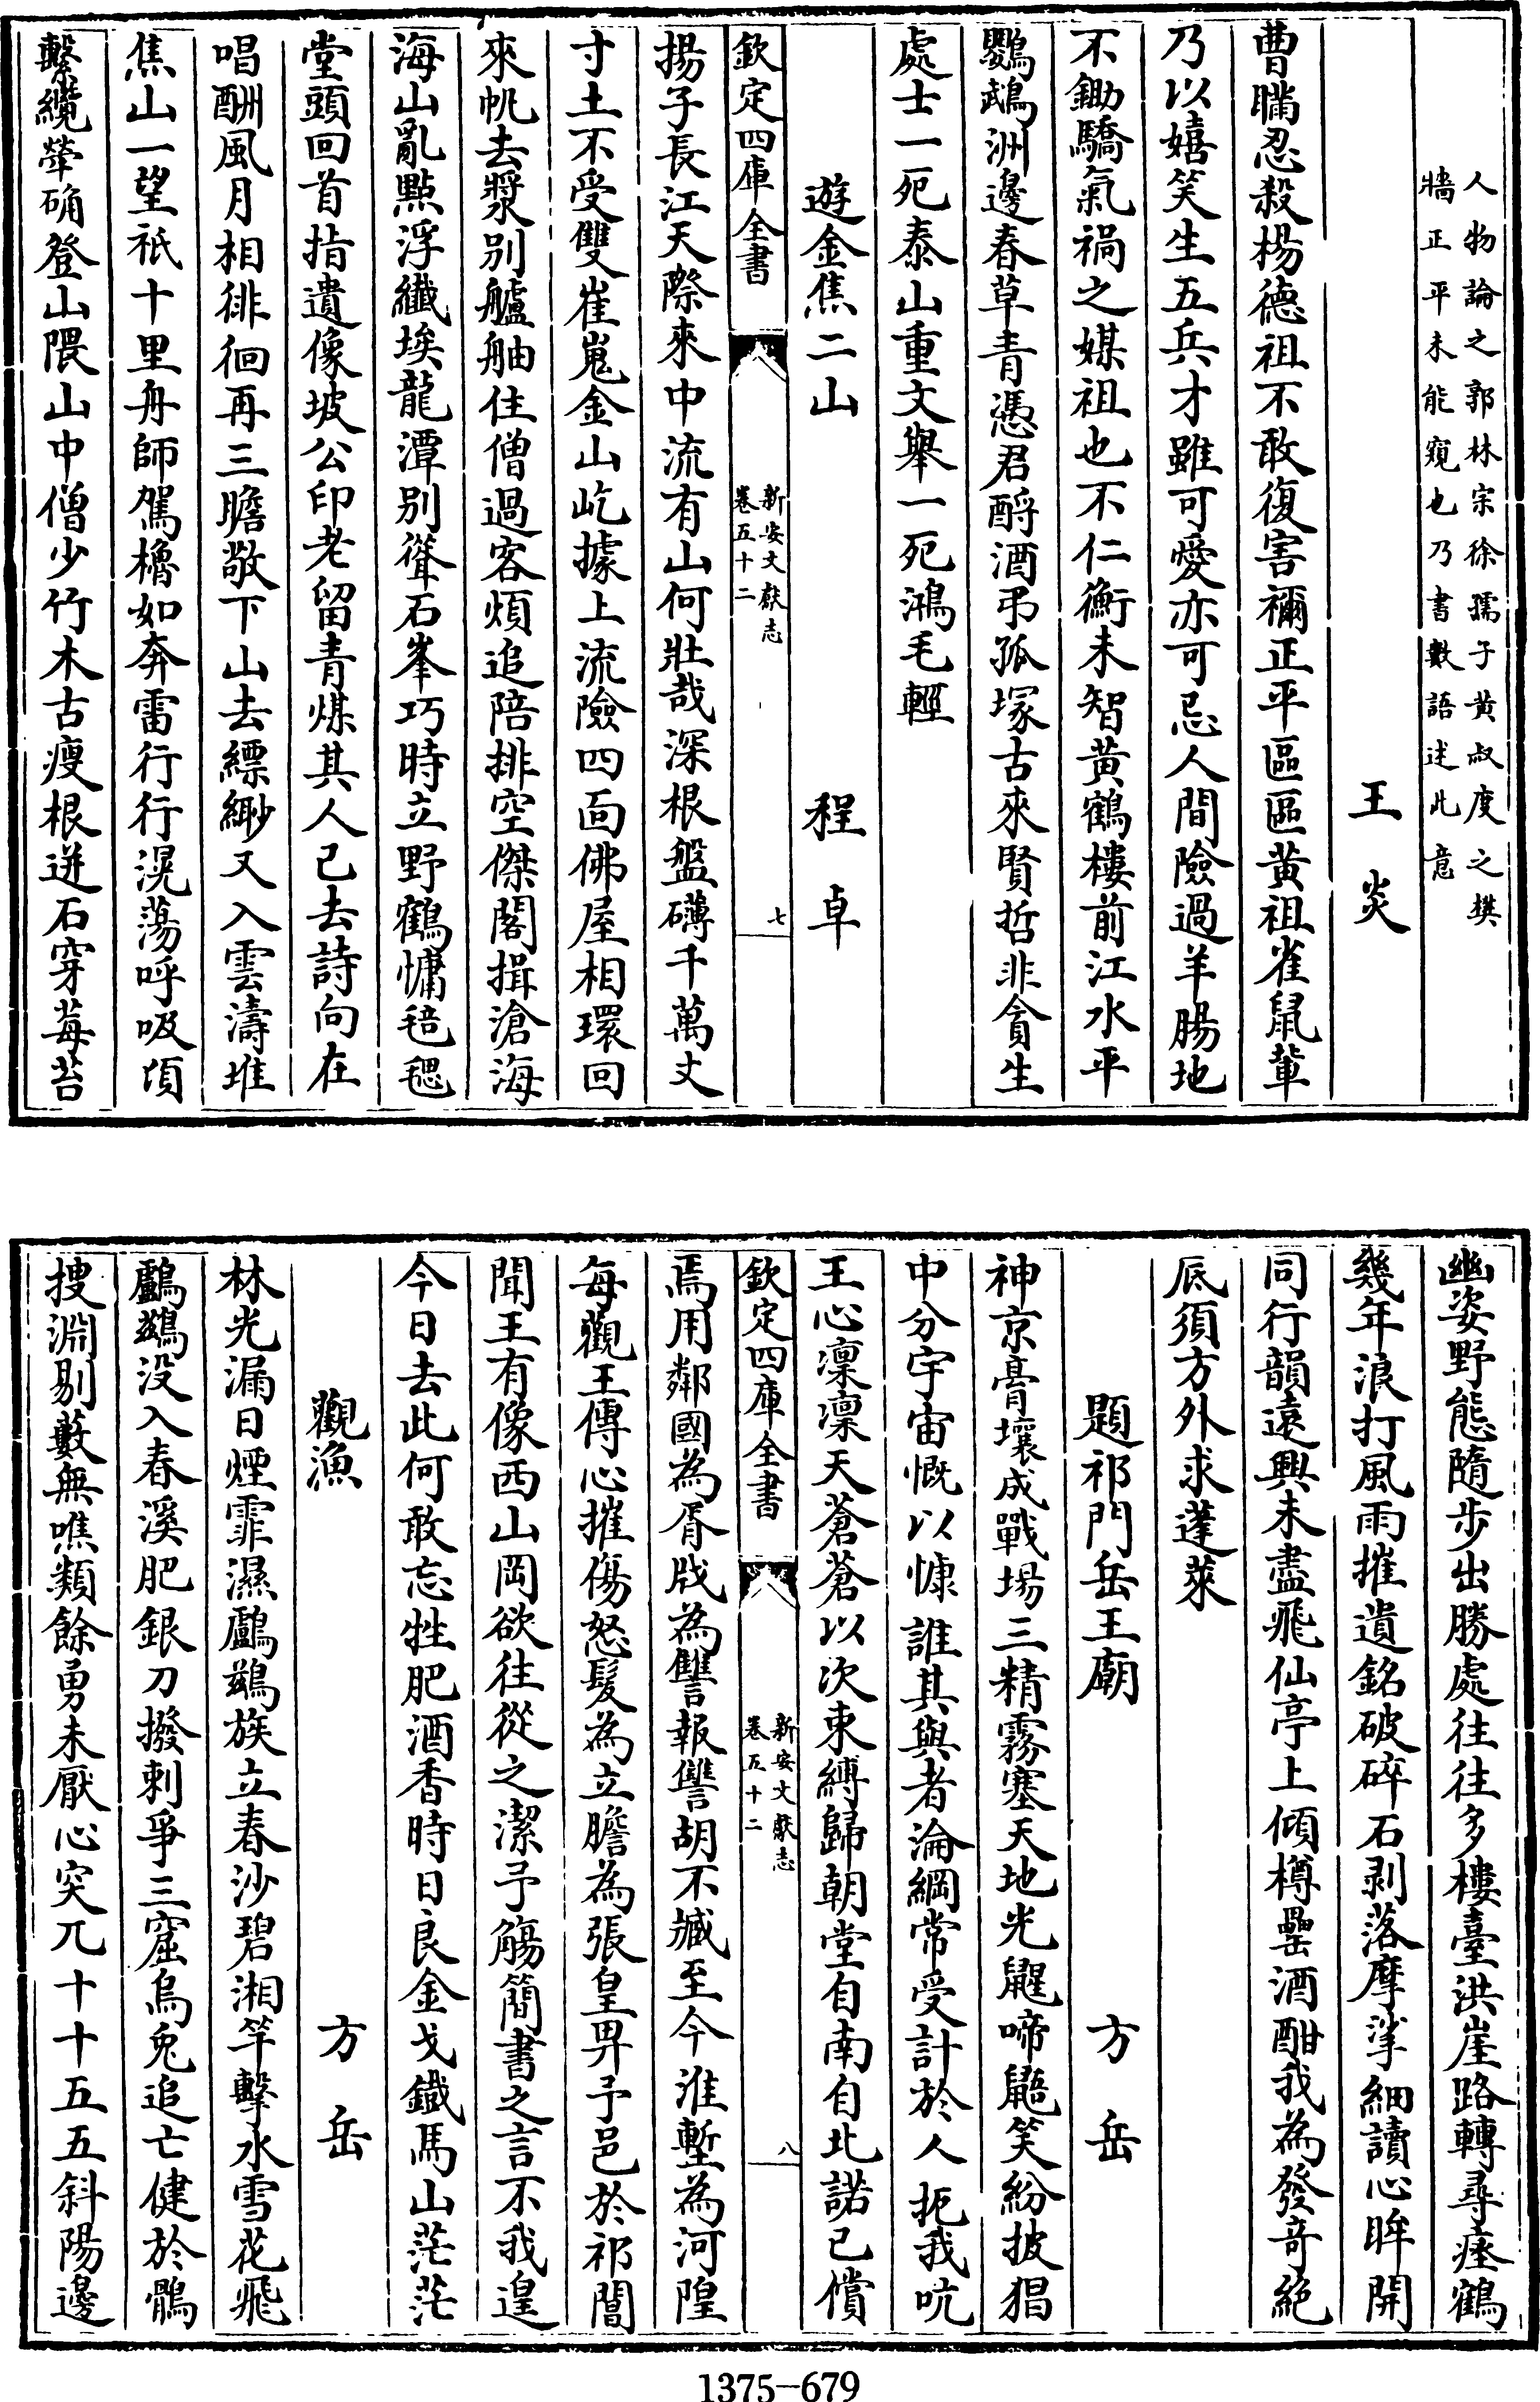 人物論之郭林宗徐孺子黄叔度之樸
牆正平未能窺也乃書數語述此意
王炎
曹瞞忍殺楊德祖不敢復害禰正平區區黄祖雀鼠輩
乃以嬉笑生五兵才雖可愛亦可忌人間險過羊腸地
不鋤驕氣禍之媒祖也不仁衡未智黄鶴樓前江水平
鸚鵡洲邊春草青憑君酹酒弔孤塚古來賢哲非貪生
處士一死泰山重文舉一死鴻毛輕
遊金焦二山
程卓
欽定四庫全書
新安文獻志
卷五十二
七
揚子長江天際來中流有山何壯哉深根盤礴千萬丈
寸土不受雙崔嵬金山屹據上流險四面佛屋相環回
來帆去槳別艫舳住僧過客煩追陪排空傑閣揖滄海
海山亂點浮纖埃龍潭別聳石峯巧時立野鶴慵毰毸
堂頭回首指遺像坡公印老留青煤其人已去詩向在
唱酬風月相徘徊再三瞻敬下山去縹緲又入雲濤堆
焦山一望祇十里舟師駕櫓如奔雷行行滉蕩呼吸頃
繫纜犖确登山隈山中僧少竹木古瘦根迸石穿莓苔
幽姿野態隨步出勝處往往多樓臺洪崖路轉尋瘞鶴
幾年浪打風雨摧遺銘破碎石剥落摩挲細讀心眸開
同行韻遠興未盡飛仙亭上傾樽罍酒酣我為發奇絶
底須方外求蓬萊
題祁門岳王廟
方岳
神京膏壤成戰場三精霧塞天地光鼪啼鼯笑紛披猖
中分宇宙慨以慷誰其與者淪綱常受計於人扼我吭
王心凜凜天蒼蒼以次束縛歸朝堂自南自北諾已償
欽定四庫全書
新安文獻志
卷五十二
八
焉用鄰國為胥戕為讐報讐胡不臧至今淮塹為河隍
每觀王傳心摧傷怒髮為立膽為張皇畀予邑於祁閶
聞王有像西山岡欲往從之潔予觴簡書之言不我遑
今日去此何敢忘牲肥酒香時日良金戈鐵馬山茫茫
觀漁
方岳
林光漏日煙霏濕鸕鷀族立春沙碧湘竿擊水雪花飛
鸕鷀没入春溪肥銀刀撥刺爭三窟烏兔追亡健於鶻
搜淵剔藪無噍類餘勇未厭心突兀十十五五斜陽邊
1375-679